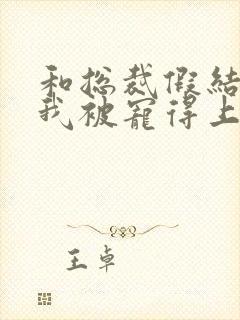 和总裁假结
我被宠得上
王卓